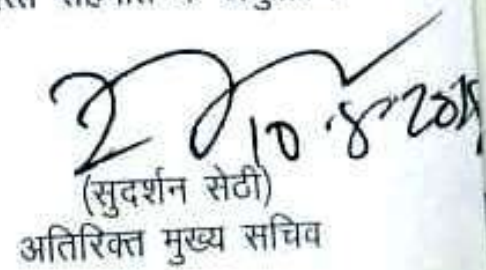 10-8-201
(सुदर्शन सेठी)
अतिरिक्त मुख्य सचिव